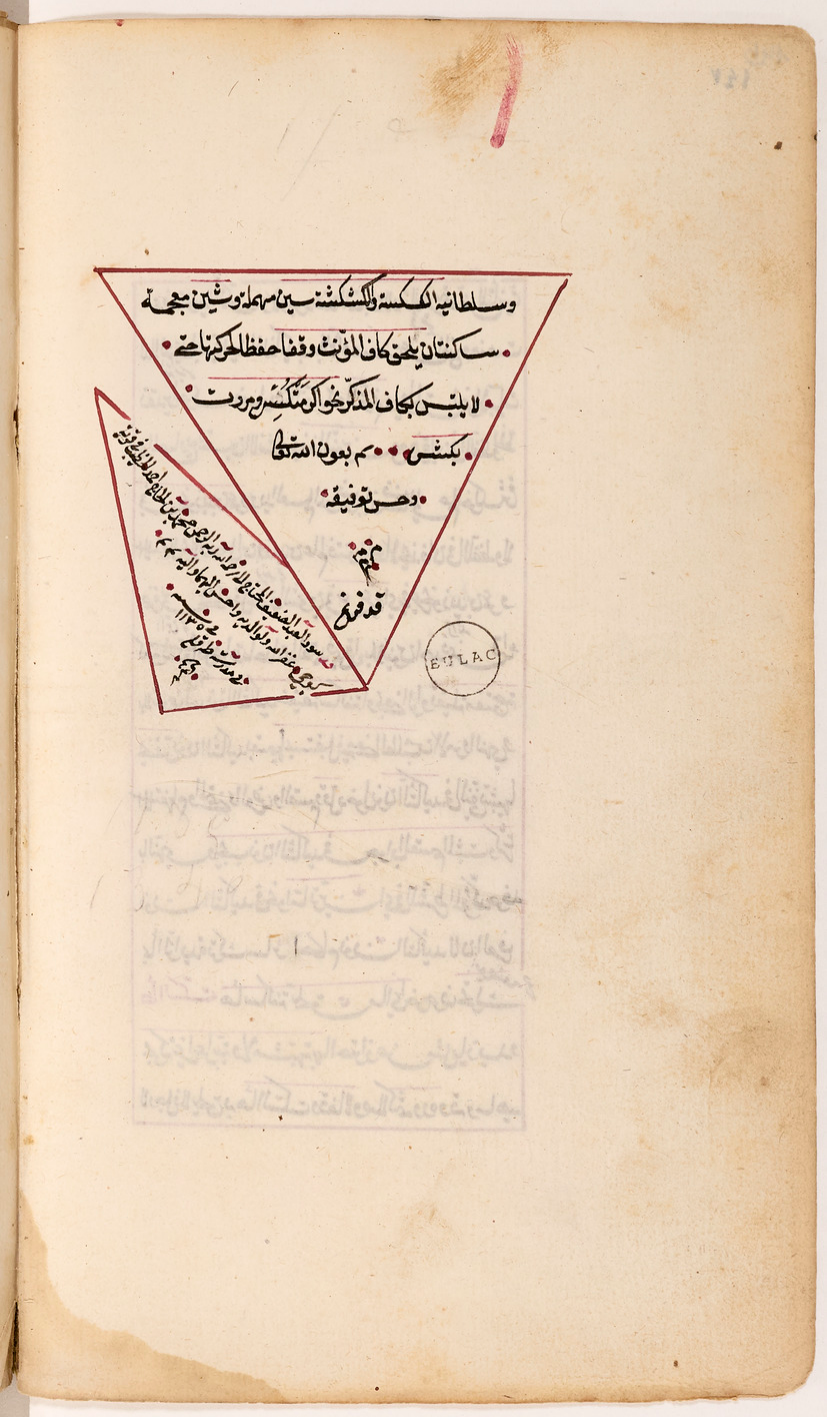 وسلطانيه الكسكسة والكشكشة سين مهملة وشين معجمة
ساكنتان يلحق كاف المؤنث وقفا حفظا لحركتها حتى
لا يلتبس بكاف المذكر نحو اكرمتكس ومررت
بكش تم بعون الله تعالى
وحسن توفيقه
م م م
قد فرغ
قد سود العبد الضعيف المحتاج الى رحمة الله ربه الرحمن محمد بن الحاج
غفر الله له ولوالديه واحسن اليهما واليه
في مدرسة
في سنة ١١٣٥
EULAC